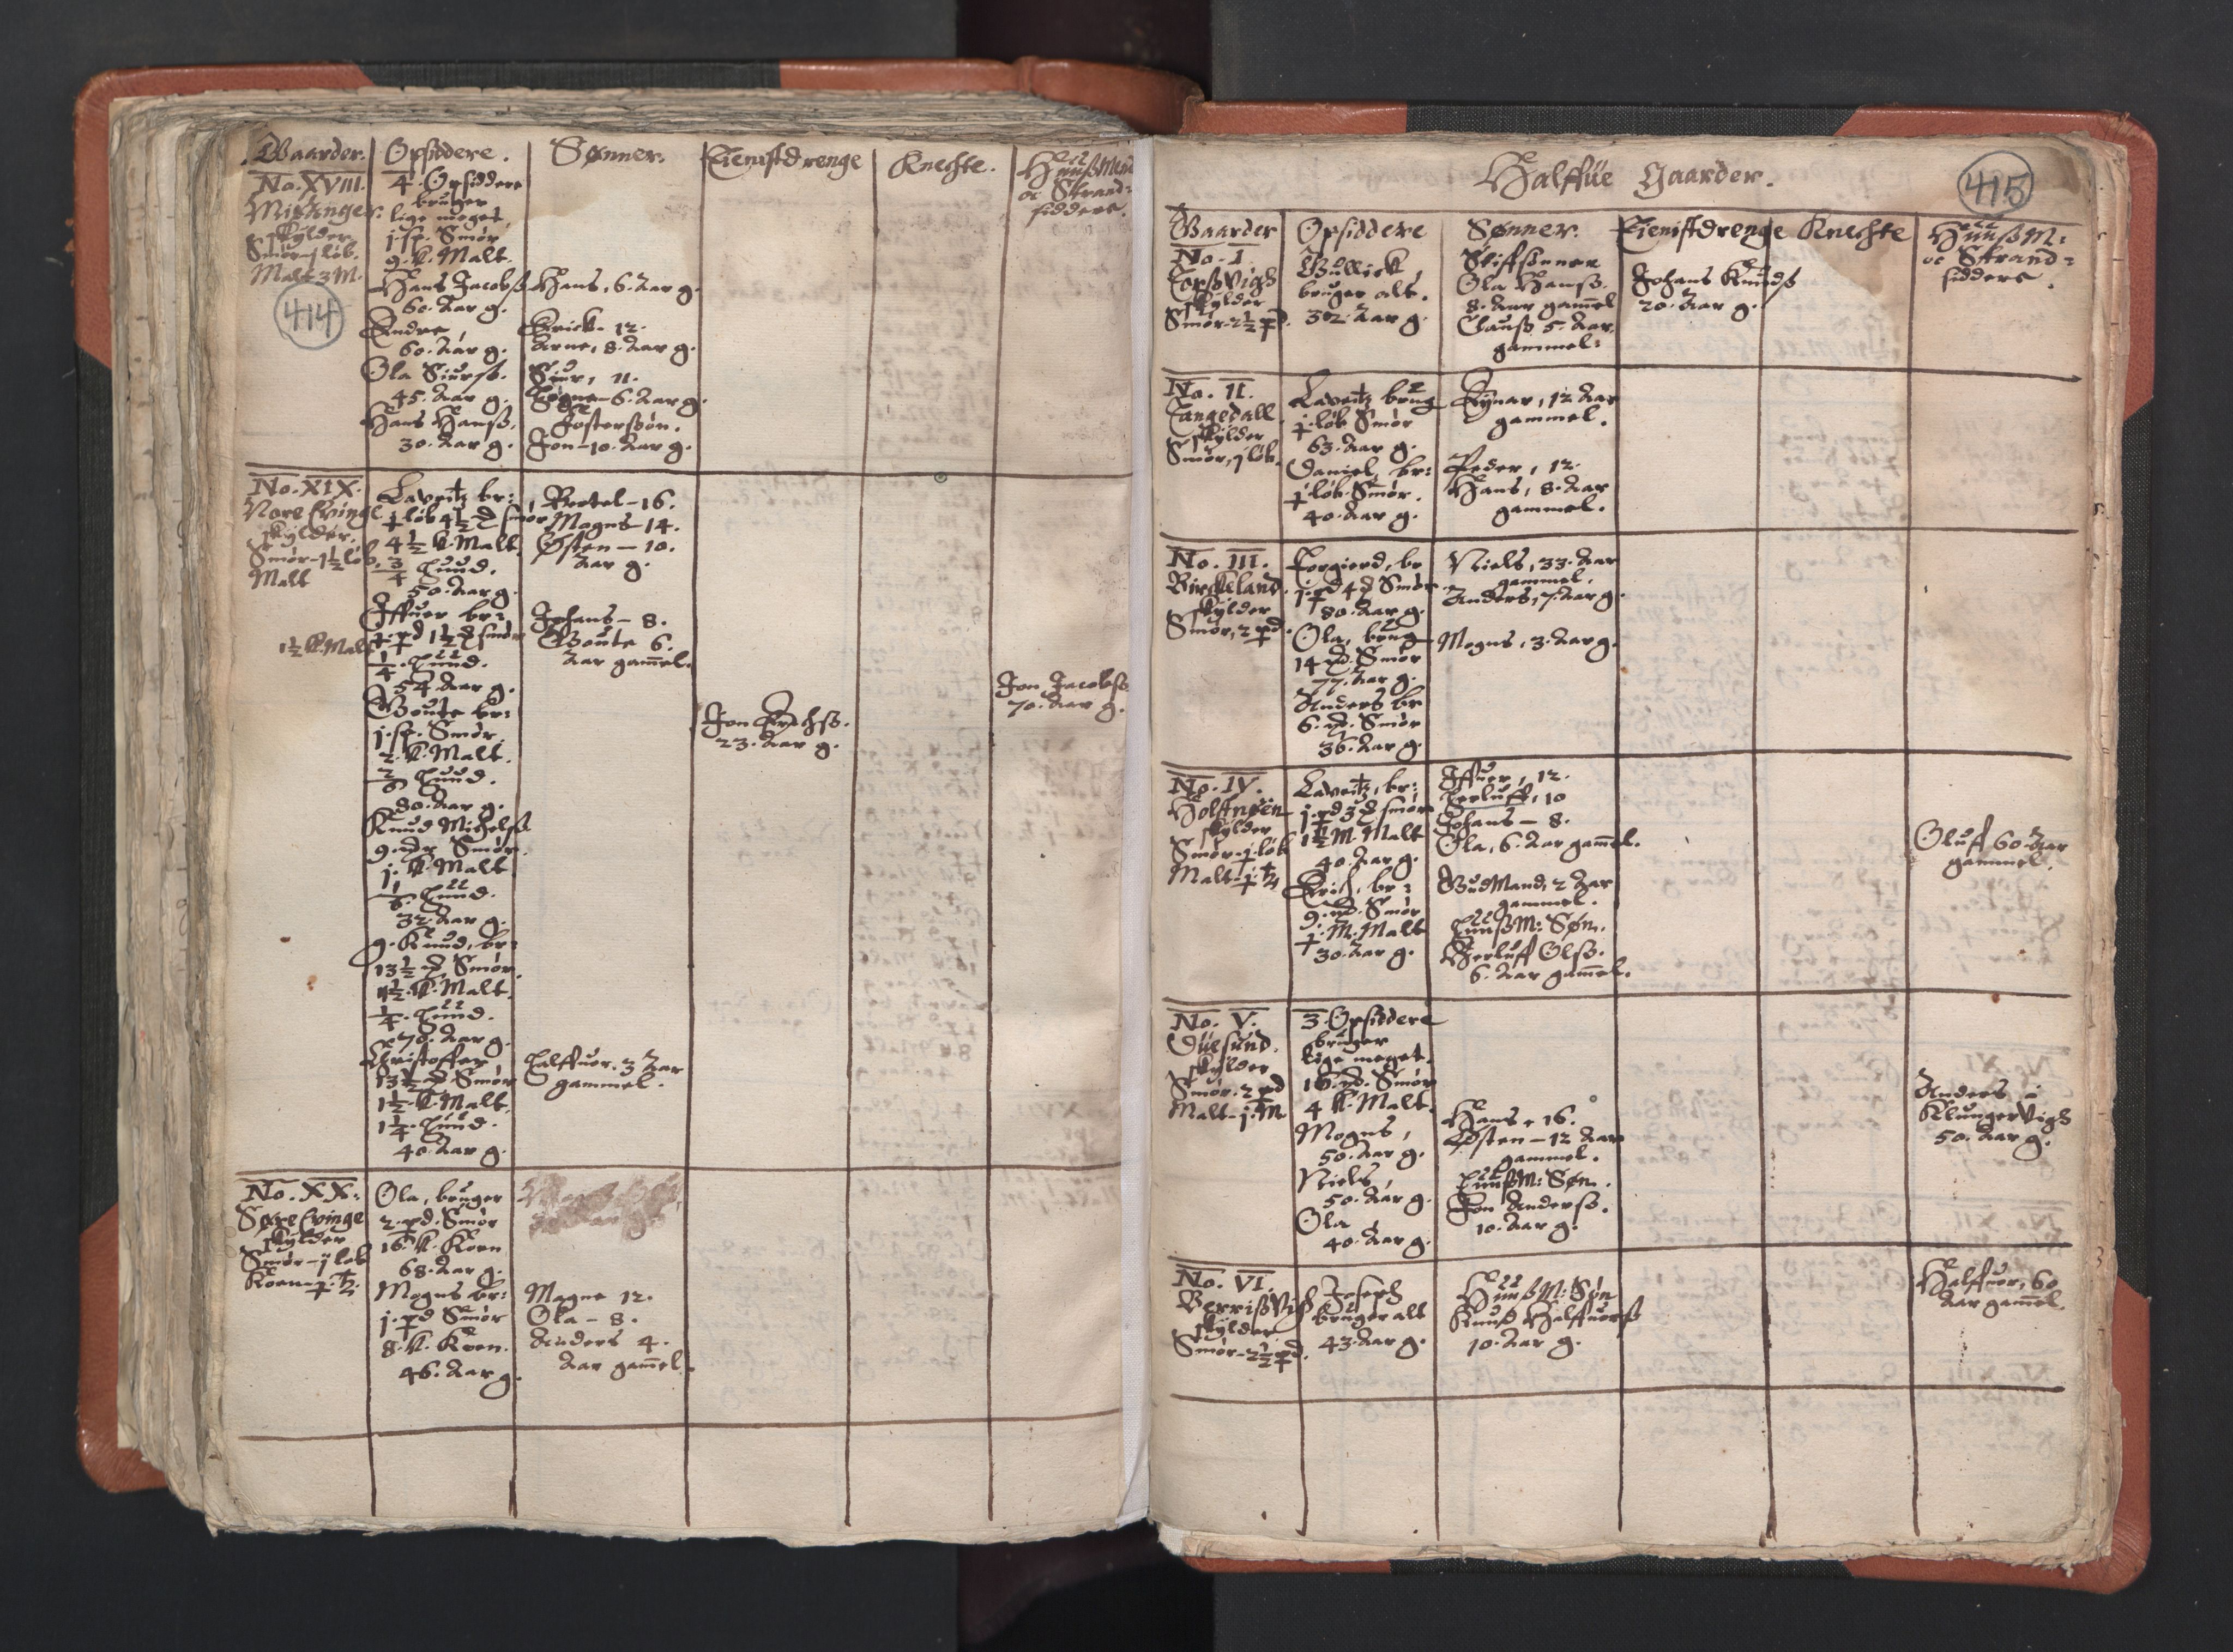 Gaarder. Opsiddere. Sønner. Tienistdrenge Knechte. Huusmend
oc Strand-
siddere.
No. XVIII.
skylder
Smør-j løb.
Malt 3 M.
414
4 Opsiddere
bruger
lige meget.
j. sp. Smør
9. K. Malt.
Hans Jacobß
60. Aar g.
Endre,
60. Aar g.
Ola Siurß.
45. Aar g.
Hans Hanß.
30. Aar g.
Hans, 6. Aar g.
Erick - 12.
Arne, 8. Aar g.
Siur, 11.
6. Aar g.
Fostersøn.
Jon - 10. Aar g.
No. XIX.
Nore Evinge
skylder.
Smør-1½ løb,
Malt
1½ K. Malt
Lavritz br:
løb 4½ smør
4½ K. Malt
¾ Huud.
50. Aar g.
Iffuer br:
pd 1½ smør
¼. Huud.
54. Aar g.
Goute br:
j. sp. Smør
2. K. Malt.
Huud.
80. Aar g.
Knud Michelß
9. Smør.
j. K. Malt
Huud.
32. Aar g.
g. Knud, br:
13½ Smør.
1½. K. Malt.
¼. Huud.
70. Aar g.
Christoffer
13½ Smør
1½ K. Malt.
1¼. Huud.
40. Aar g.
Brotel - 16.
Mogns - 14.
Østen - 10.
Aar g.
Johans - 8.
Goute 6.
Aar gam̄el.
Halffuor. 3 Aar
gammel.
23. Aar g.
Jon Jacobß.
70. Aar g.
No. XX.
Søre Evinge
skylder
Smør - j løb
Korn
Ola, bruger
2. pd. Smør
16. K. Korn
68. Aar g.
Mogns br:
j. pd Smør
8. K. Korn.
46. Aar g.
Magne 12.
Ola - 8.
Anders 4.
Aar gam̄el.
Halffue Gaarder.
415
Gaarder Opsiddere Sønner. Tienistdrenge Knechte Huußm:
oc Strand-
siddere.
No. I.
skylder
Smør. 2½ pd.
Gullick
bruger alt.
32. Aar g.
Stiffsønner
Ola Hanß.
8. Aar gam̄el
Clauß 5. Aar
gammel:
Johans Knudß
20. Aar g.
No. II.
Tangedall
skylder
Smør, j løb.
Lavritz brug
løb Smør
63. Aar g.
Daniel, br:
løb Smør.
40. Aar g.
Eynar, 12 Aar
gammel.
Peder, 12.
Hans, 8. Aar
gammel.
No. III.
Birckeland.
skylder
Smør, 2 pd.
Torgierd, br
j. pd 4 Smør
80. Aar g.
Ola, brug
14 Smør
77. Aar g.
Anders br
6. Smør
36. Aar g.
Niels, 33. Aar
gammel.
Anders, 7. Aar g.
Mogns, 3. Aar g.
No. IV.
skylder
Smør-j. løb
Malt
Lavritz, br:
j. pd 3 smør
1½ M. Malt
40. Aar g.
Erich, br:
9. Smør
M. Malt
30. Aar g.
Iffuer, 12.
Herluff, 10
Johans - 8.
Ola, 6. Aar gam̄el.
Gudmand, 2 Aar
gammel.
Huußm: Søn.
Herluff Olß.
6. Aar gam̄el.
Oluf 60 Aar
gammel.
No. V.
Duesund.
skylder
Smør. 2 pd
Malt - j. M
3 Opsiddere
bruger
lige meget.
16. Smør
4 K. Malt.
Mogns,
50. Aar g.
Niels,
50. Aar g.
Ola
40. Aar g.
Hans, 16.
Østen - 12 Aar
gammel.
Huußm: Søn.
Jon Anderß.
10. Aar g.
Anders i
Klungervigh
50. Aar g.
No. VI.
skylder
Smør - 2½ pd.
Joseph
bruger alt
43. Aar g.
Huußm: Søn
Knud Halffuorß
10. Aar g.
Halffuor, 60
Aar gam̄el